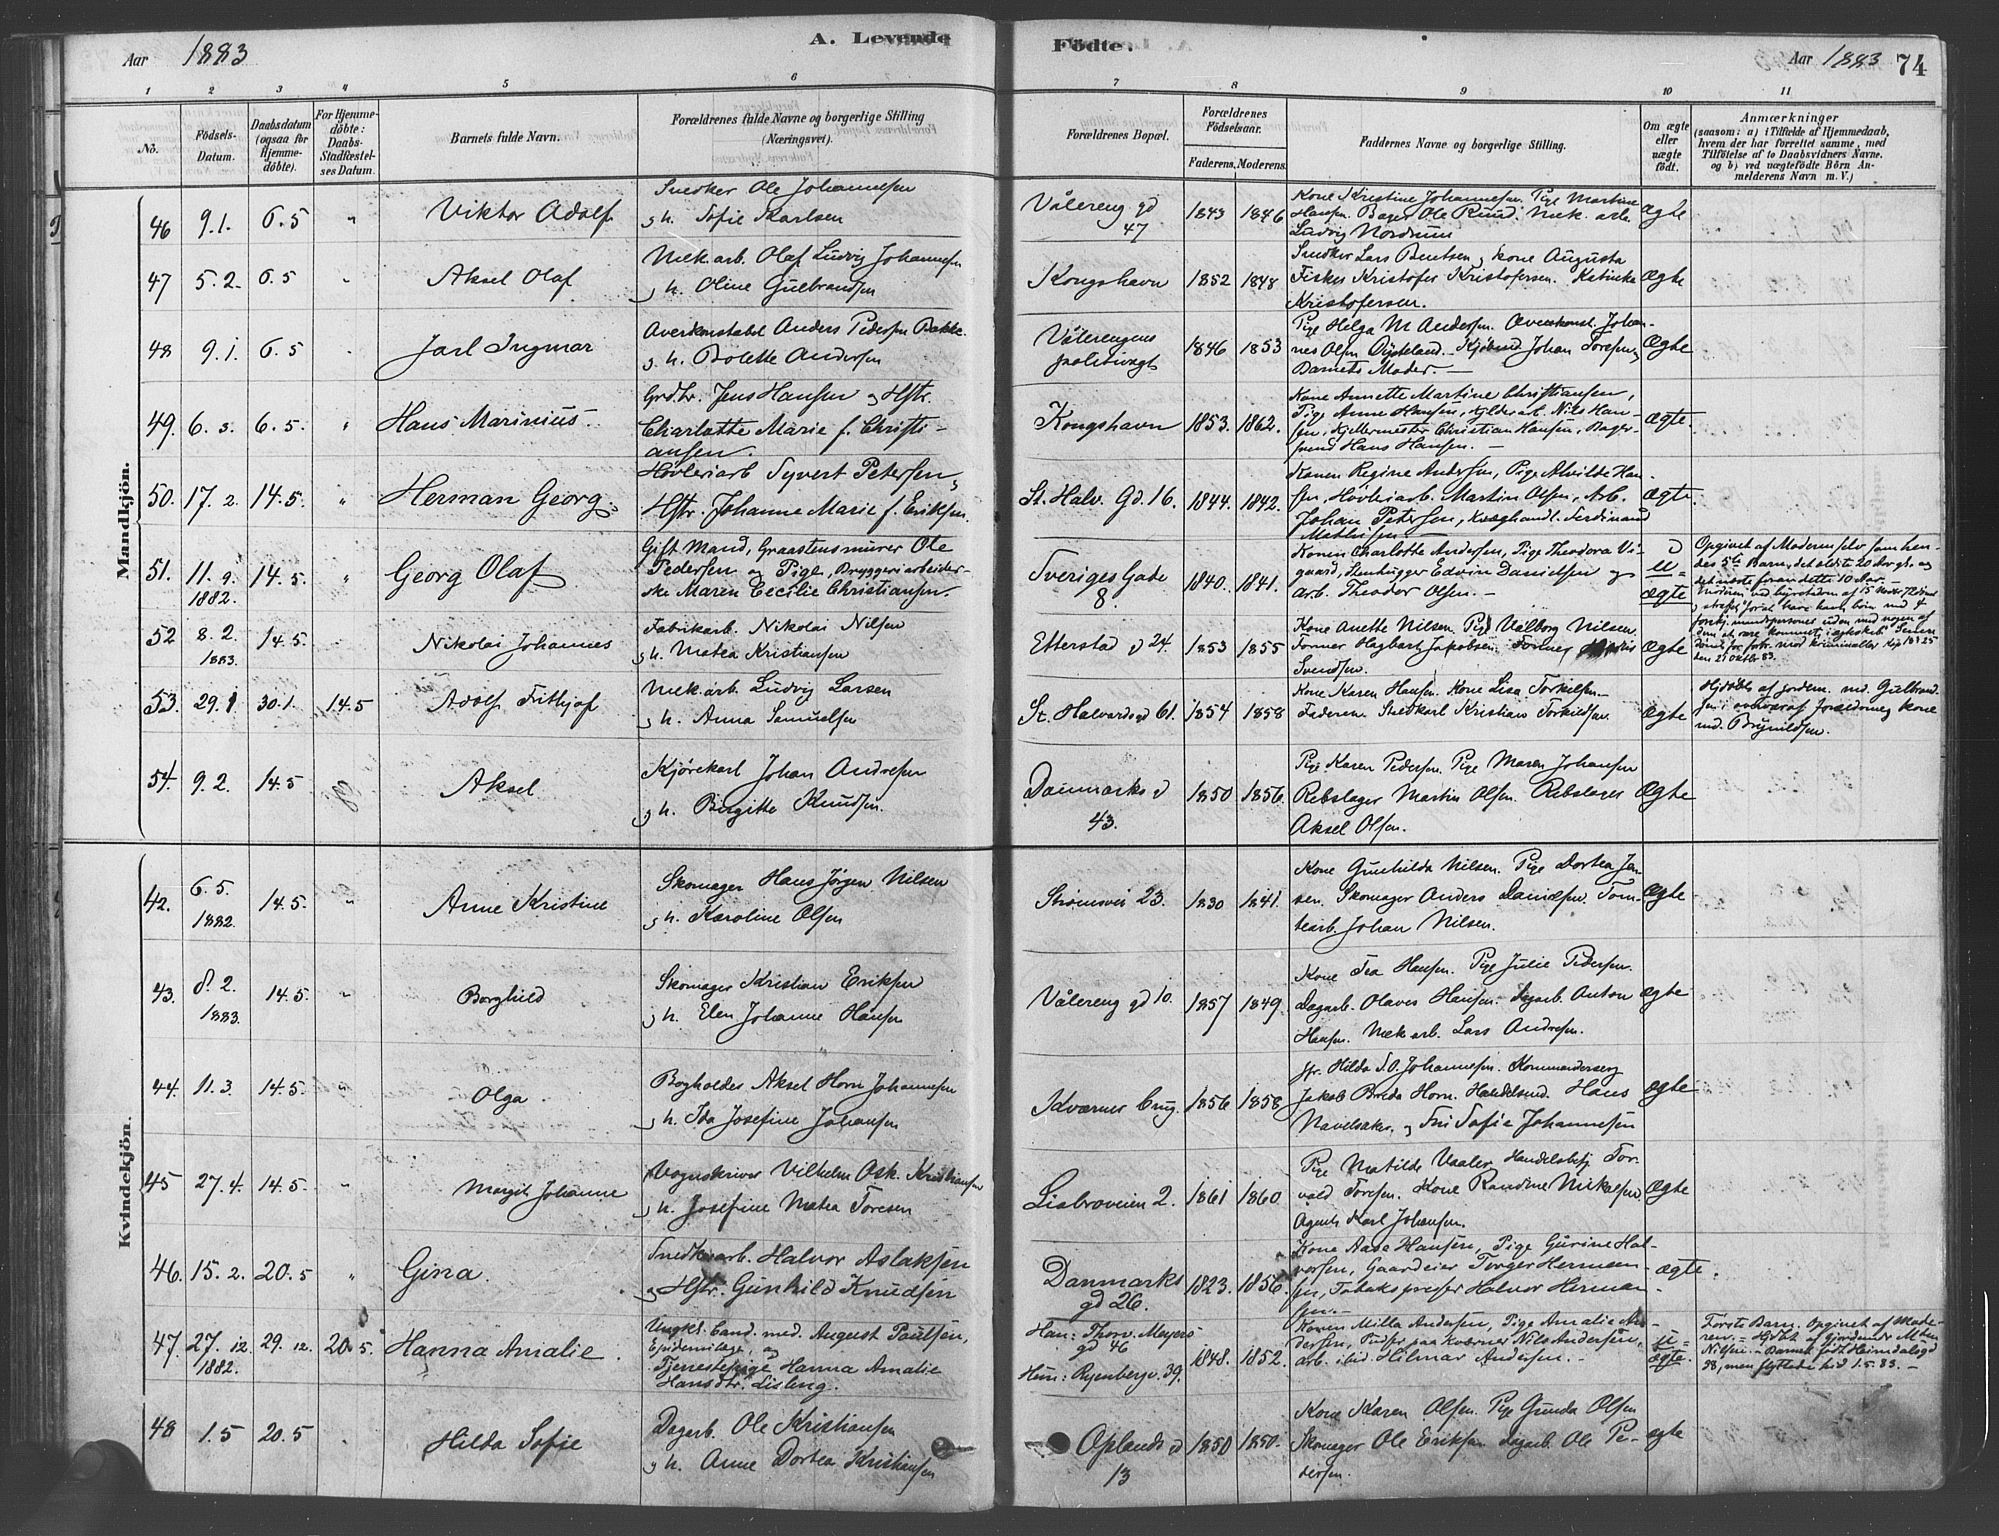 Aar 1883
A. Levende
Födte.
Aar 1883 74
1 2 3 4 5 6 7 8 9 10 11
No.
Födsels-Datum.
Daabsdatum (ogsaa for Hjemme-döbte).
For Hjemme-döbte: Daabs-Stadfæstel-ses Datum.
Barnets fulde Navn.
Forældrenes fulde Navne og borgerlige Stilling
(Næringsvei).
Forældrenes Bopæl.
Forældrenes Födselsaar.
Faderens. Moderens.
Faddernes Navne og borgerlige Stilling.
Om ægte eller uægte födt.
Anmærkninger
(saasom: a) i Tilfælde af Hjemmedaab,
hvem der har forrettet samme, med
Tilföielse af to Daabsvidners Navne.
og b) ved uægtefödte Börn An-
melderens Navn m. V.)
Mandkjön.
46 9.1. 6.5 " Viktor Adolf
Snedker Ole Johannesen
og h. Sofie Karlsen
Vålereng gd
47
1843 1846
Kone Kristine Johannesen. Pige Martine
Hansen. Bager Ole Ruud. Mek. arb.
Ludvig Nordrum
Ægte
47 5.2. 6.5 " Aksel Olaf
Mek. arb. Olaf Ludvig Johannesen
og h. Oline Gulbrandsen
Kongshavn 1852 1848
Snedker Lars Bentsen og kone Augusta
Fisker Kristofer Kristofersen. Katinka
Kristofersen.
Ægte
48 9.1. 6.5 Jarl Ingmar
Overkonstabel Anders Pedersen Bakke
og h. Bolette Andersen
Vålerengens
politivagt
1846 1853
Pige Helga M Andersen. Overkonst. Johan-
nes Olsen Kjøbmd Johan Toresen,
Barnets Moder.
Ægte
49. 6. 3. 6.5. " Hans Marinius
Grdbr. Jens Hansen og Hstr.
Charlotte Marie f. Christi-
ansen.
Kongshavn 1853. 1862.
Kone Annette Martine Christiansen,
Pige Anne Hansen, Nils Han-
sen, Christian Hansen, Bager-
svend Hans Hansen.
Ægte.
50. 17. 2. 14.5. " Herman Georg.
Høvleriarb Syvert Petersen
Hstr. Johanne Marie f. Eriksen.
St. Halv. Gd. 16. 1844. 1842.
Konen Regine Andersen, Pige Alvilde Han-
sen, Høvleriarb. Martin Olsen, Arb.
Johan Petersen, Ferdinand
Mathisen
Ægte.
51. 11. 9. 1882. 14.5. " Georg Olaf
Gift Mand, Graastensmurer Ole
Pedersen og Pige, Bryggeriarbeider-
ske Maren Cecilie Christiansen.
Sveriges Gade
8.
1840. 1841.
Konen Charlotte Andersen, Pige Theodora Vi-
gaard, Stenhugger Edvin Danielsen og
arb. Theodor Olsen.
u-
ægte
Opgivet af Moderen selv som hen-
des 5te Barn, det ældste 20 Aar gl. og
det næste foran dette 10 Aar.
52 8. 2. 1883. 14.5. Nikolai Johannes
Fabrikarb. Nikolai Nilsen
og h. Matea Kristiansen
Etterstad 24. 1853 1855
Kone Anette Nilsen. Pige Valborg Nilsen.
Former Hagbart Jakobsen. Former
Svendsen.
Ægte
53. 29.1 30.1. 14.5 Adolf Frithjof
Mek. arb. Ludvig Larsen
og h. Anna Samuelsen
St. Halvardsgd 61. 1854 1858
Kone Karen Hansen. Kone Lisa Torkilsen.
Faderen. Kristian Torkildsen
Ægte
Hjdøbt af jordem. md. Gulbrand-
sen i overvær af forældrene og kone
md. Brynildsen.
54. 9.2. 14.5 Aksel
Kjørekarl Johan Andresen
og h. Birgitte Knudsen.
Danmarks gd
43.
1850 1856.
Pige Karen Pedersen. Pige Maren Johansen
Rebslager Martin Olsen. Rebslager
Aksel Olsen.
Ægte
Kvindekjön.
42. 6.5. 1882. 14.5. " Anne Kristine
Skomager Hans Jørgen Nilsen
og h. Karoline Olsen
Strømsvei 23. 1830 1841.
Kone Gunhilda Nilsen. Pige Dortea Jan-
sen. Skomager Anders Danielsen. Tom-
tearb. Johan Nilsen.
Ægte
43. 8.2. 1883. 14.5. " Borghild
Skomager Kristian Eriksen
og h. Elen Johanne Hansen
Vålereng gd 10. 1857 1849.
Kone Tea Hansen. Pige Julie Pedersen.
Dagarb. Olaves Hansen. Dagarb. Anton
Hansen. Mek arb. Lars Andresen.
Ægte
44. 11.3 14.5. " Olga.
Bogholder Aksel Horn Johannesen
og h. Ida Josefine Johansen
Kværner brug. 1856 1858
Fr. Hilda S.O. Johannesen.
Jakob Breda Horn. Handelsmd. Hans
og Fru Sofie Johannesen
Ægte
45 27.4. 14.5. " Margit Johanne
Vognskriver Vilhelm Osk. Kristiansen
og h. Josefine Matea Toresen
Liabroveien 2. 1861 1860
Pige Matilde Vaaler. Handelsbetj Tor-
vald Toresen. Kone Randine Mikelsen.
Agent Karl Johansen.
Ægte
46. 15. 2. 20.5 " Gina.
Snedkerarb. Halvor Aslaksen
og Hstr. Gunhild Knudsen
Danmarks
gd 26.
1823. 1856.
Kone Aase Hansen, Pige Gurine Hal-
vorsen, Gaardeier Torger Herman-
sen, Tobakspresser Halvor Herman-
sen.
ægte.
47. 27. 12. 1882. 29. 12. 20.5. Hanna Amalie.
Ungkl. Cand. med. August Paulsen,
Epidemilæge, og
Tjenestepige Hanna Amalie
Hansdtr. Lisleng.
Han: Thorv. Meyers
gd 46
Hun: Ryenbergv. 39.
1848. 1852.
Konen Milla Andersen, Pige Amalie An-
dersen, Pudser paa Kværner Nils Andersen,
arb. ibid. Hilmar Andersen.
u-
ægte.
Første Barn. Opgivet af Mode-
ren. Hjdbt af gjordemd.
Nilsen. Barnet født Heimdalsgd
28, men flyttede hid 1.5.83.
48 1.5 20.5 Hilda Sofie
Dagarb. Ole Kristiansen
og h. Anne Dortea Kristiansen
Oplands gd
13
1850 1850.
Kone Karen Olsen. Pige Gunda Olsen
Skomager Ole Eriksen. Dagarb. Ole Pe-
dersen.
ægte